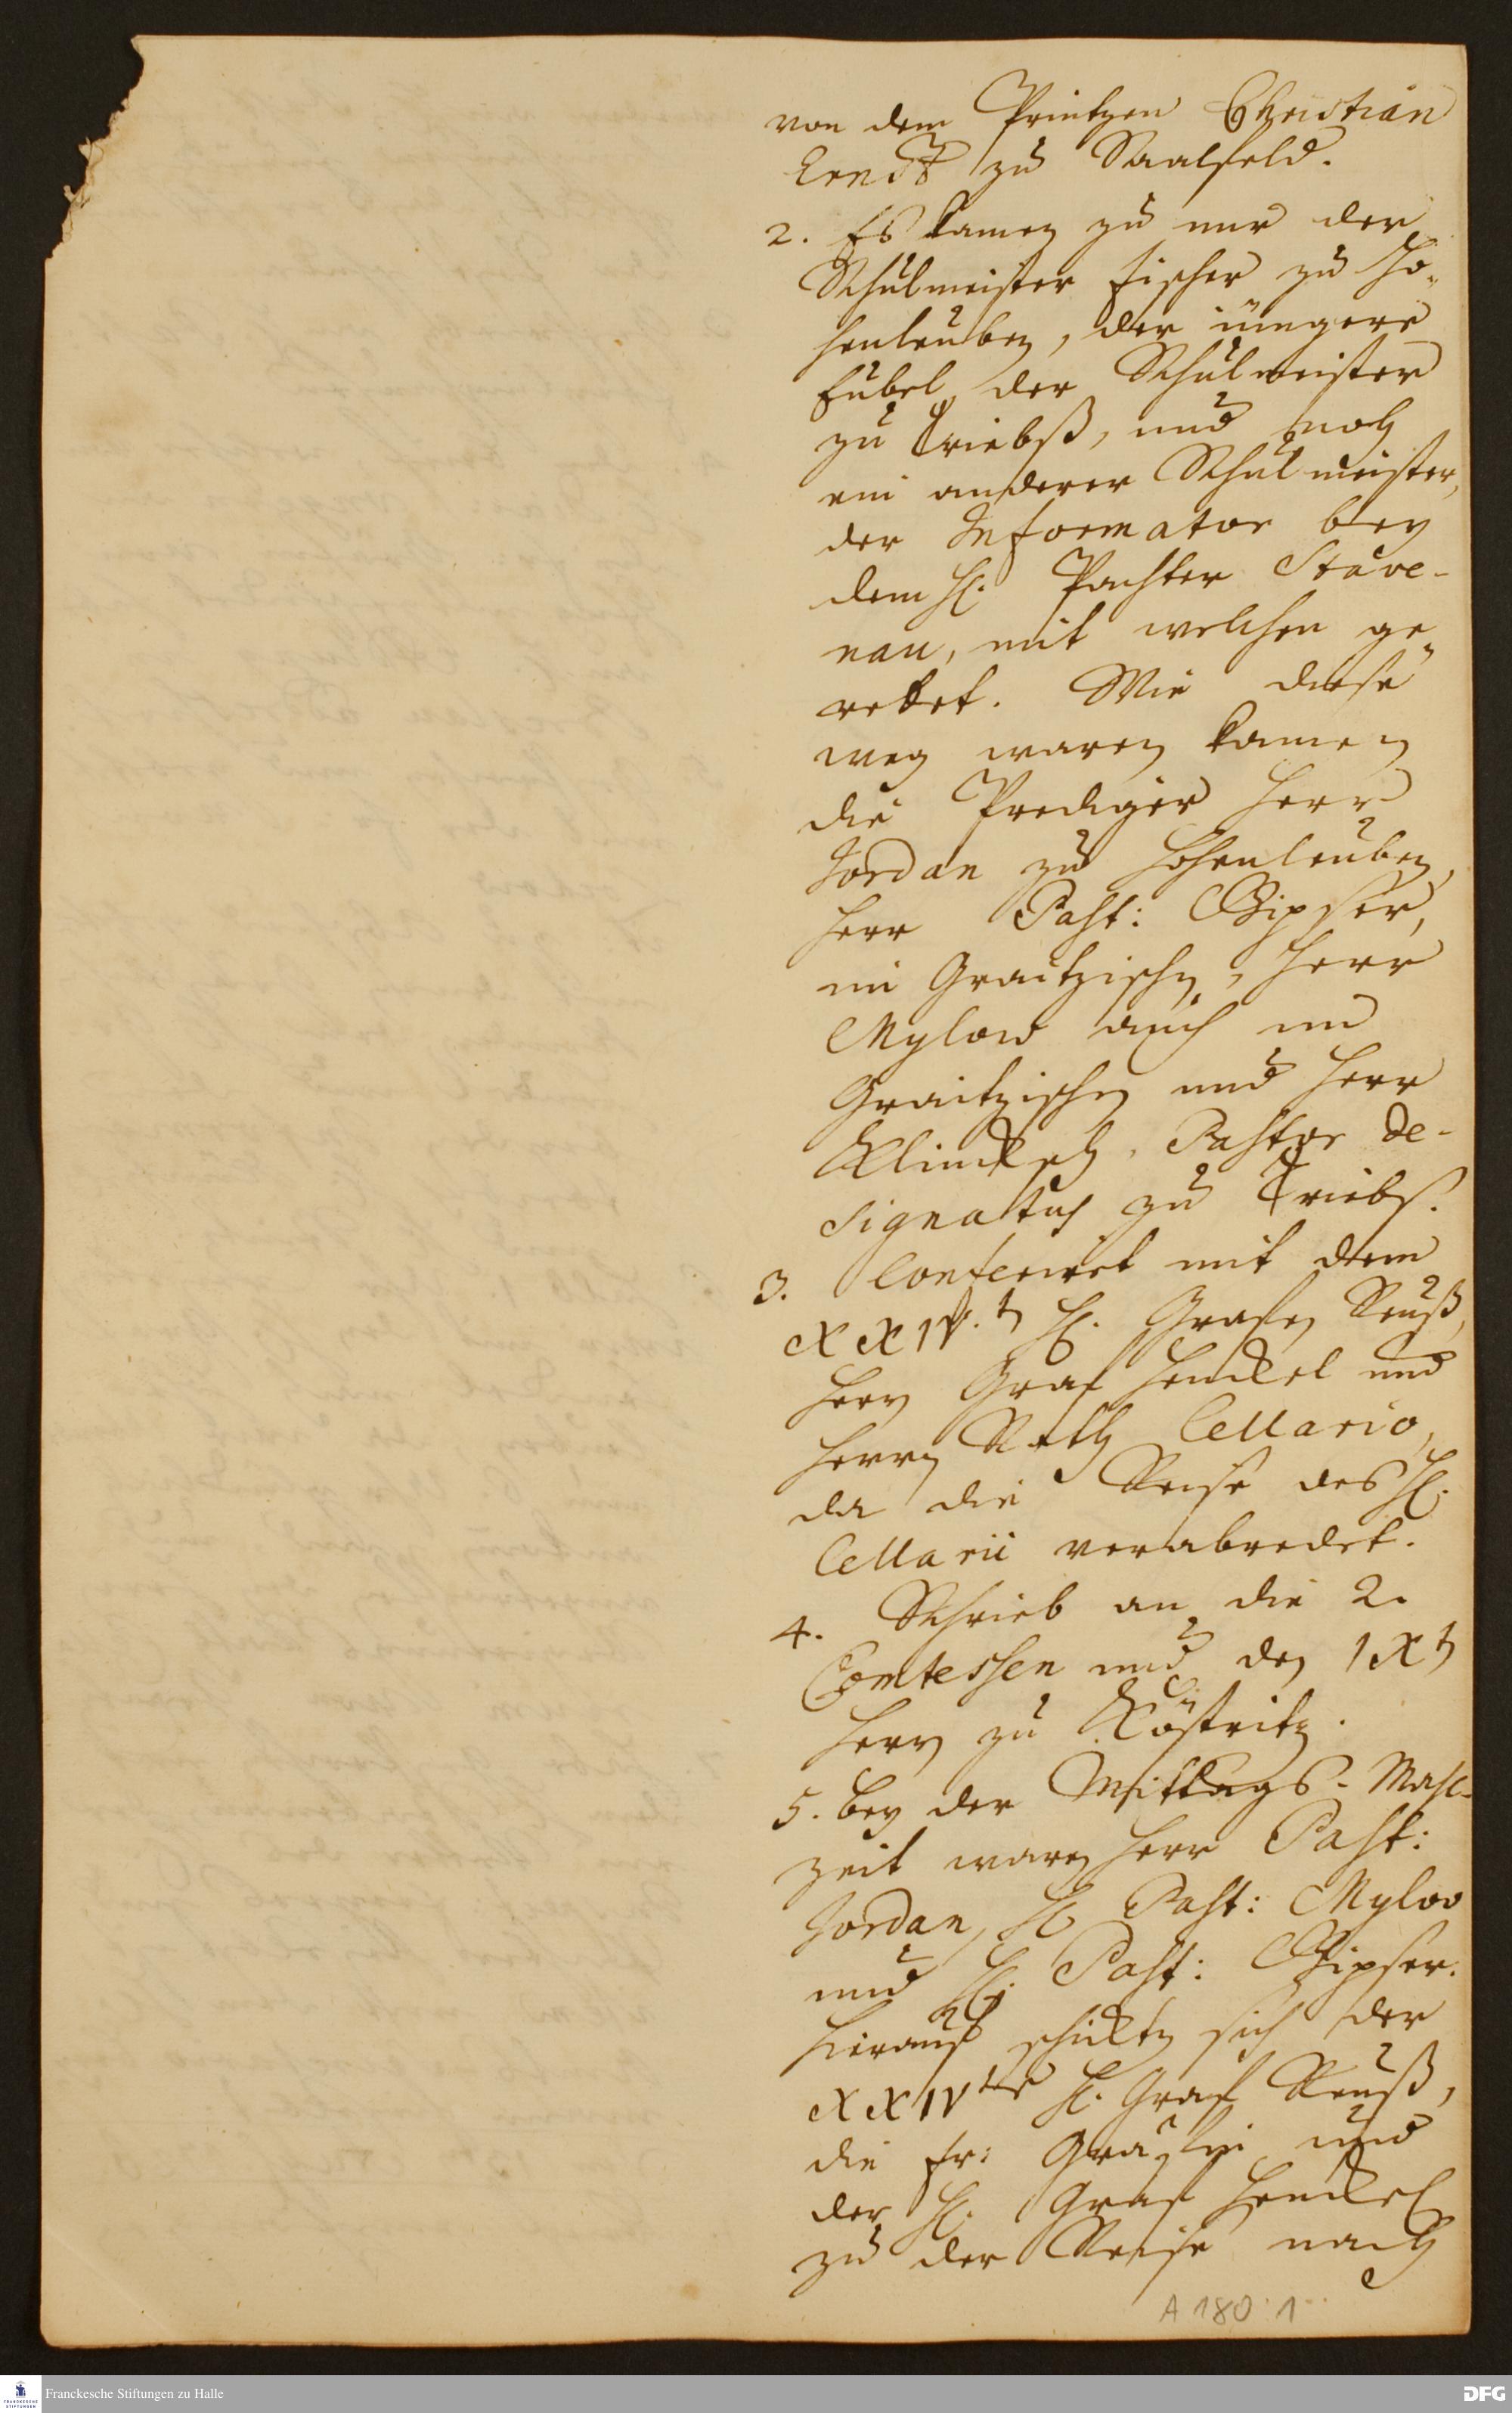 von dem Printzen Christian
Ernst zu Saalfeld.
2. Es kamen zu mir der
Schulmeister Fischer zu Ho-
henleuben, der jüngere
Eubel der Schulmeister
zu Triebß, und noch
ein anderer Schulmeister,
der Informator bey
dem H. Pachter Stave-
nau, mit welchen ge-
redet. Wie diese
weg waren kamen
die Prediger Herr
Jordan zu Hohenleuben,
Herr Past: Gipser,
im Graitzischen, Herr
Mylow auch im
Graitzischen und Herr
Klincksch, Pastor de-
signatus zu Triebs.
3. Conferiret mit dem
XXIV.t H. Grafen Reuß,
Herrn Graf Henckel und
Herrn Rath Cellario,
da die Reise des H.
Cellarii verabredet.
4. Schrieb an die 2.
Comtessen und den IXt
Herrn zu Köstritz.
5. Bey der Mittags-Mahl-
zeit waren Herr Past:
Jordan, H. Past: Mylow
und H. Past: Gipser.
Hierauf schickten sich der
XXIVte H. Graf Reuß,
die Fr: Gräfin und
der H. Graf Henckel
zu der Reise nach
A 180 : 1
Franckesche Stiftungen zu Halle
FRANCKESCHE STIFTUNGEN
DFG